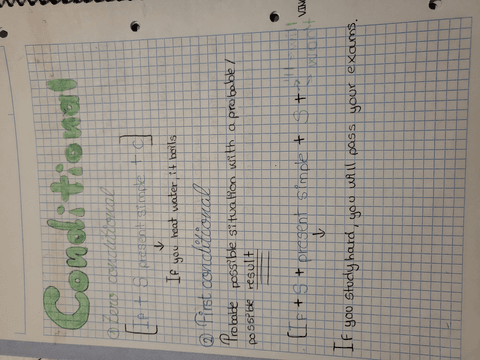 Conditional
① Zero conditional
[If + S present simple + C]
↓
If you heat water, it boils
② First conditional
Probable possible situation with a probable/
possible result
[IF + S + present simple + S +
↓
If you study hard, you will pass your exams.